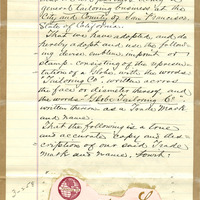 general Tailoring business at the
City and County of San Francisco
State of California.
That we have adopted and do
hereby adopt and use the follow-
ing device emblem imprint or
stamp - consisting of the represen-
tation of a Globe, with the words
"Tailoring Co" written across
the face or diameter thereof, and
the words "Globe Tailoring Co"
written thereon as a Trade Mark
and name.
That the following is a true
and accurate copy and des-
cription of our said Trade
Mark and name, to wit: